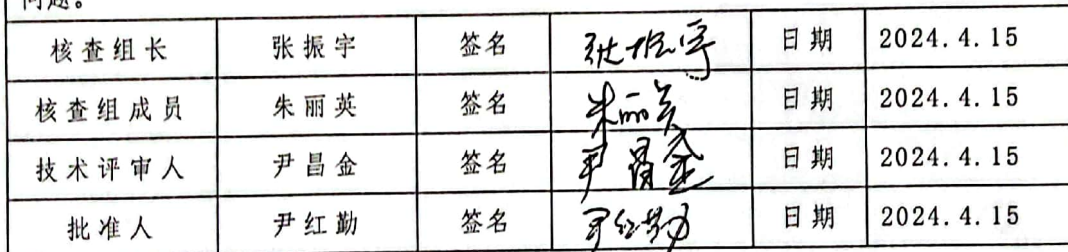 问题。
核查组长 张振宇 签名 张振宇 日期 2024.4.15
核查组成员 朱丽英 签名 朱丽英 日期 2024.4.15
技术评审人 尹昌金 签名 尹昌金 日期 2024.4.15
批准人 尹红勤 签名 尹红勤 日期 2024.4.15